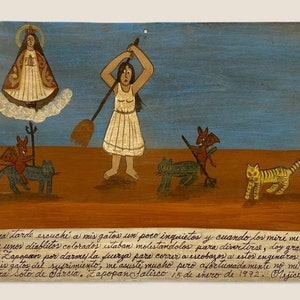 tarde escuché a mis gatos un poco inquietos y cuando los miré me
unos diablitos colorados estaban molestandolos para divertirse,
Zapopan por darme la fuerza para correr a escobazos a estos engendros
gatos del sufrimiento, me asusté mucho pero afortunadamente no
Soto de García, Zapopan Jalisco 15 de enero de 1992.